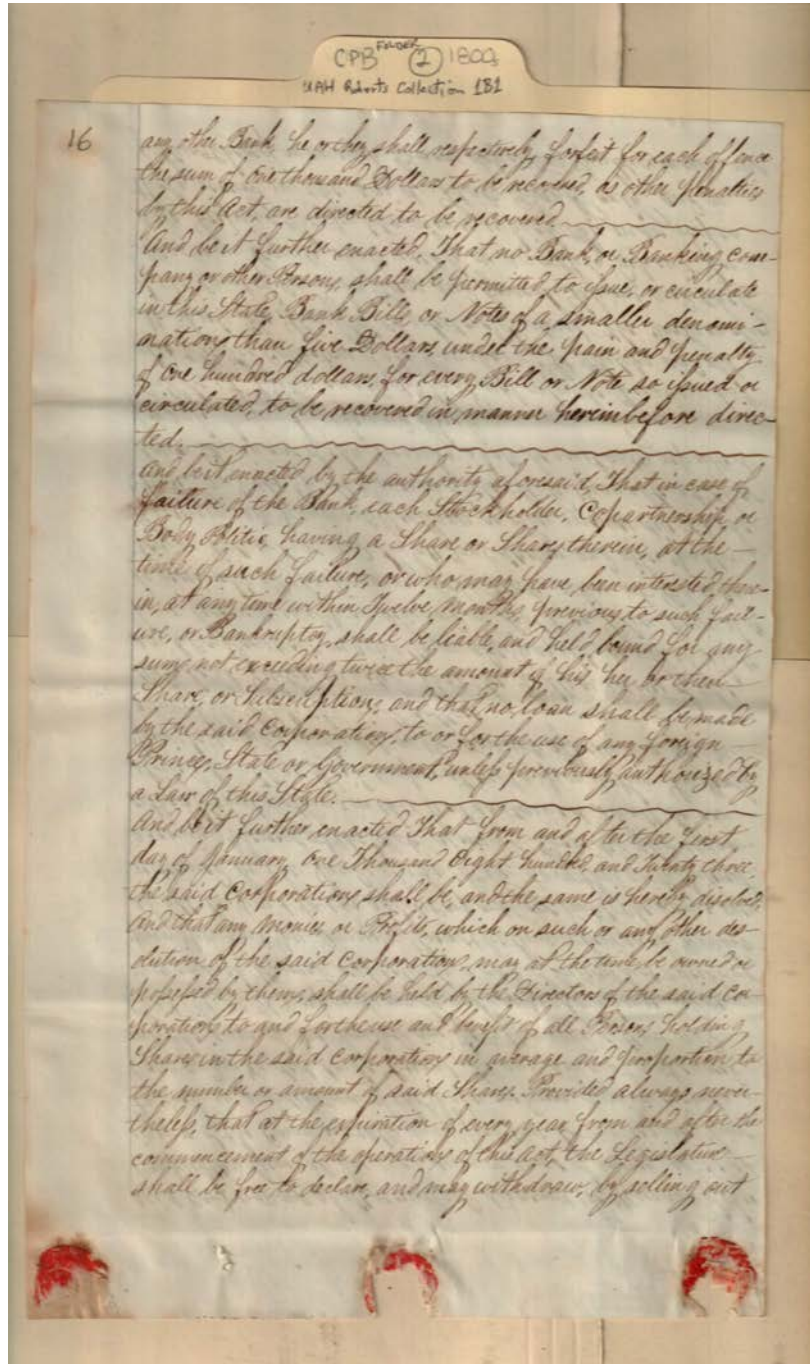 CPB FOLDER 2 1800
UAH Roberts Collection 1B1
16
any other Bank, he or they shall respectively, forfeit for each offence
the sum of One thousand Dollars to be recovered, as other penalties
by this Act, are directed to be recovered
And be it further enacted, That no Bank, or Banking Com-
pany or other Persons, shall be permitted to issue, or circulate
in this State, Bank Bills, or Notes of a smaller denomi-
nation than five Dollars, under the pain and penalty
of One hundred dollars, for every Bill or Note so issued or
circulated, to be recovered in manner hereinbefore direc-
ted.
And be it enacted by the authority aforesaid, That in case of
failure of the Bank, each Stockholder, Copartnership, or
Body Politic, having a Share or Shares therein, at the
time of such failure, or who may have been interested there-
in, at any time within Twelve Months, previous to such fail-
ure, or Bankruptcy, shall be liable, and held, bound for any
sum, not exceeding twice the amount of his her or their
Share, or Subscription, and that no loan shall be made
by the said Corporation, to or for the use of any foreign
Prince, State or Government, unless previously authorized by
a Law of this State.
And be it further enacted That from and after the first
day of January, One Thousand Eight hundred, and Twenty three,
the said Corporation, shall be, and the same is hereby disolved,
And that any Monies or Profits, which on such or any other des-
olution of the said Corporation, may at the time, be owned or
possessed by them, shall be held by the Directors of the said Cor-
poration, to and for the use and benefit of all Persons holding
Shares in the said Corporation, in average and proportion to
the number or amount of said Shares. Provided always never-
theless, that at the expiration of every year from and after the
commencement of the operation of this Act, the Legislature
shall be free to declare, and may withdraw, by selling out